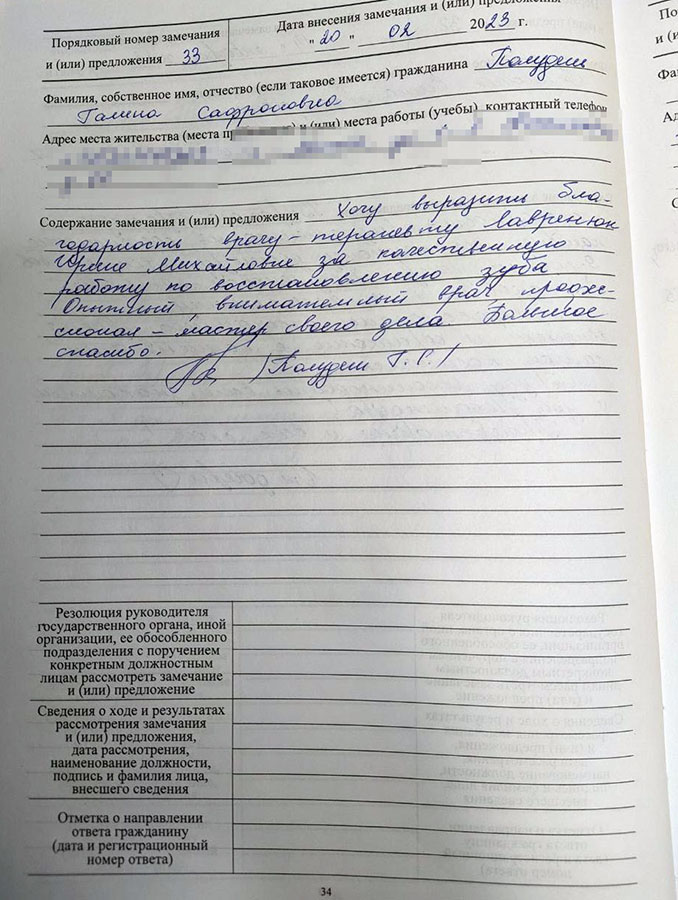 Порядковый номер замечания
и (или) предложения 33
Дата внесения замечания и (или) предложения
"20" 02 2023 г.
Фамилия, собственное имя, отчество (если таковое имеется) гражданина Полудень
Галина Сафроновна
Адрес места жительства (места и (или) места работы (учебы), контактный телефон
Содержание замечания и (или) предложения Хочу выразить бла-
годарность врачу-терапевту Лавренюк
Ирине Михайловне за качественную
работу по восстановлению зуба
Опытный, внимательный врач, профес-
сионал - мастер своего дела. Большое
спасибо.
/Полудень Г.С./
Резолюция руководителя
государственного органа, иной
организации, ее обособленного
подразделения с поручением
конкретным должностным
лицам рассмотреть замечание
и (или) предложение
Сведения о ходе и результатах
рассмотрения замечания
и (или) предложения,
дата рассмотрения,
наименование должности,
подпись и фамилия лица,
внесшего сведения
Отметка о направлении
ответа гражданину
(дата и регистрационный
номер ответа)
34